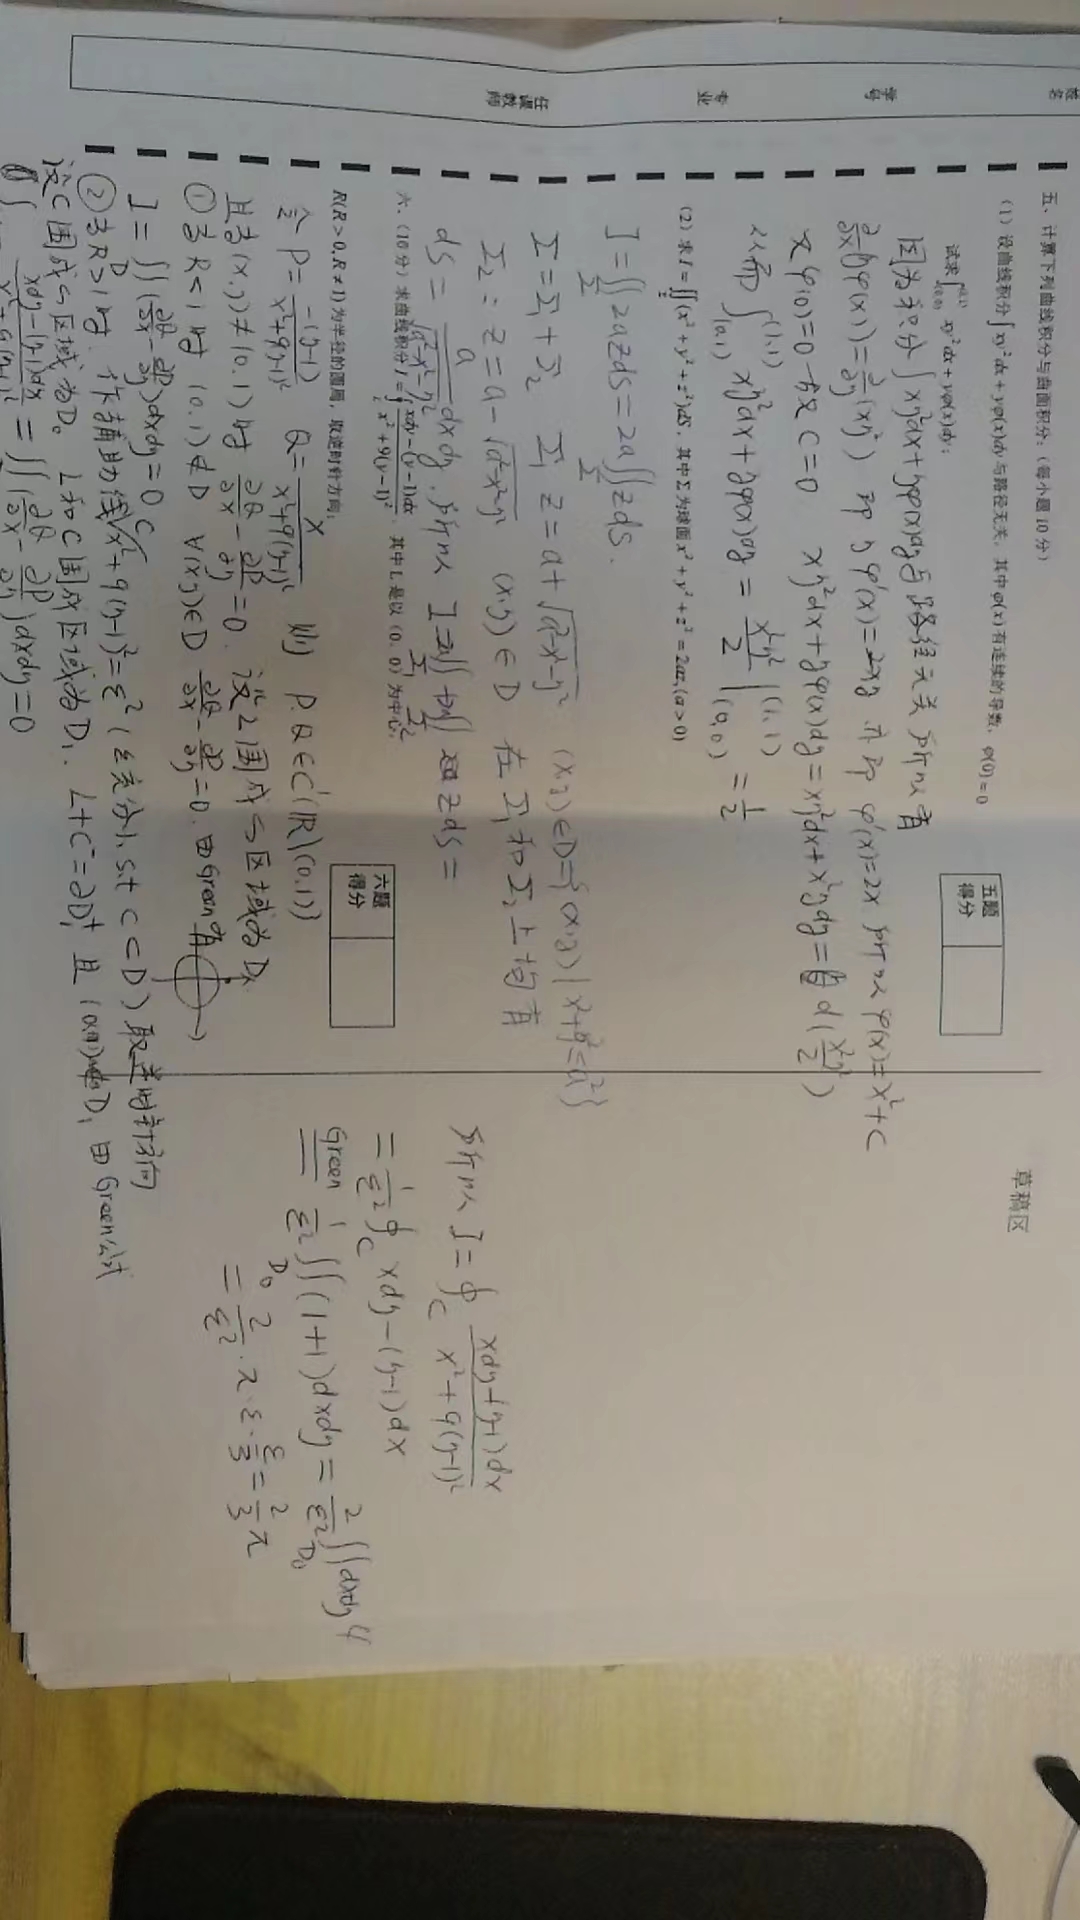 姓名
学号
专业
任课教师
五、计算下列曲线积分与曲面积分:(每小题10分)
(1)设曲线积分∫xy²dx+yφ(x)dy与路径无关,其中φ(x)有连续的导数,φ(0)=0
试求∫_{(0,0)}^{(1,1)} xy²dx+yφ(x)dy;
五题
得分
因为积分∫xy²dx+yφ(x)dy与路径无关 所以有
∂/∂x(yφ(x))=∂/∂y(xy²) 即 yφ'(x)=2xy 亦即 φ'(x)=2x 所以 φ(x)=x²+C
又φ(0)=0 故 C=0 xy²dx+yφ(x)dy=xy²dx+x²ydy= d(x²y²/2)
从而 ∫_{(0,1)}^{(1,1)} xy²dx+yφ(x)dy = x²y²/2 |_{(0,0)}^{(1,1)} = 1/2
(2)求I=∬_Σ(x²+y²+z²)dS,其中Σ为球面x²+y²+z²=2az,(a>0)
I=∬_Σ 2azds=2a∬_Σ zds.
Σ=Σ₁+Σ₂ Σ₁ z=a+√(a²-x²-y²) (x,y)∈D={(x,y)|x²+y²≤a²}
Σ₂: z=a-√(a²-x²-y²) (x,y)∈D 在Σ₁和Σ₂上均有
ds= a/√(a²-x²-y²) dxdy.所以 I=2a∬_{Σ₁}+2a∬_{Σ₂} zds=
六.(10分)求曲线积分I=∮_L (xdy-(y-1)dx)/(x²+9(y-1)²),其中L是以(0,0)为中心,
R(R>0,R≠1)为半径的圆周,取逆时针方向;
六题
得分
令 P=-(y-1)/(x²+9(y-1)²) Q=x/(x²+9(y-1)²) 则 P.Q∈C'(ℝ\(0,1)}
且当(x,y)≠(0,1)时 ∂Q/∂x-∂P/∂y=0. 设L围成の区域为D.
①当R<1时 (0,1)∉D ∀(x,y)∈D ∂Q/∂x-∂P/∂y=0.由Green有
I=∬_D(∂Q/∂x-∂P/∂y)dxdy=0
②当R>1时.作辅助线C x²+9(y-1)²=ε²(ε充分小s.t C⊂D)取逆时针方向
设C围成の区域为D₀ L和C围成区域为D₁. L+C⁻=∂D₁⁺ 且(0,1)∉D₁ 由Green公式
∫ (xdy-(y-1)dx)/(x²+9(y-1)²)=∬(∂Q/∂x-∂P/∂y)dxdy=0
草稿区
所以 I=∮_C (xdy-(y-1)dx)/(x²+9(y-1)²)
=1/ε² ∮_C xdy-(y-1)dx
Green= 1/ε² ∬_{D₀}(1+1)dxdy=2/ε² ∬_{D₀}dxdy
=2/ε²·π·ε·ε/3=2/3 π